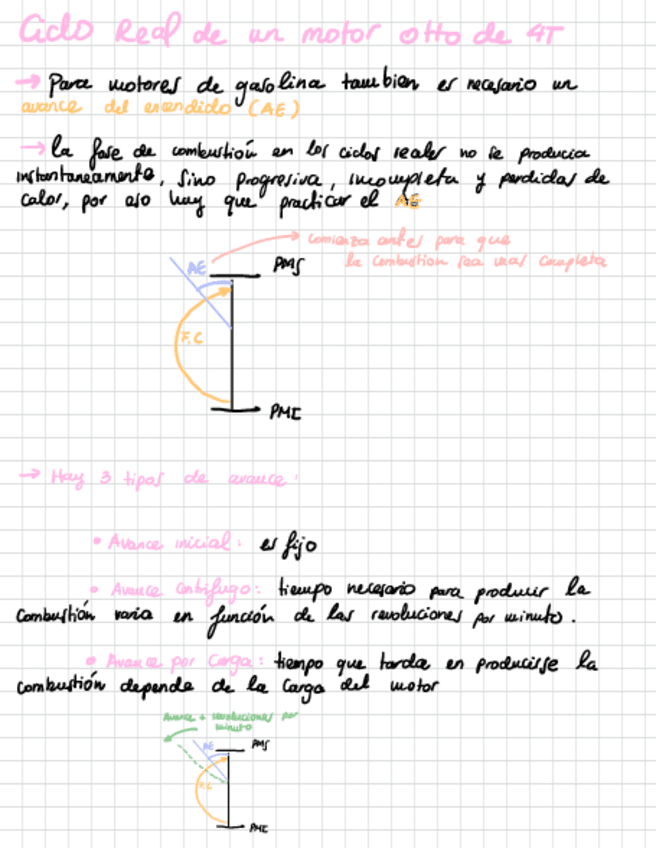 Ciclo Real de un motor otto de 4T
→ Para motores de gasolina tambien es necesario un
avance del encendido (AE)
→ la fase de combustión en los ciclos reales no se producia
instantaneamente, sino progresiva, incompleta y perdidas de
calor, por eso hay que practicar el AE
comienza antes para que
la combustion sea mas completa
AE
PMS
F.C
PMI
→ Hay 3 tipos de avance:
• Avance inicial: es fijo
• Avance Centrifugo: tiempo necesario para producir la
combustión varia en función de las revoluciones por minuto.
• Avance por Carga: tiempo que tarda en producirse la
combustión depende de la carga del motor
Avance + revoluciones por
minuto
AE
PMS
F.C
PMI